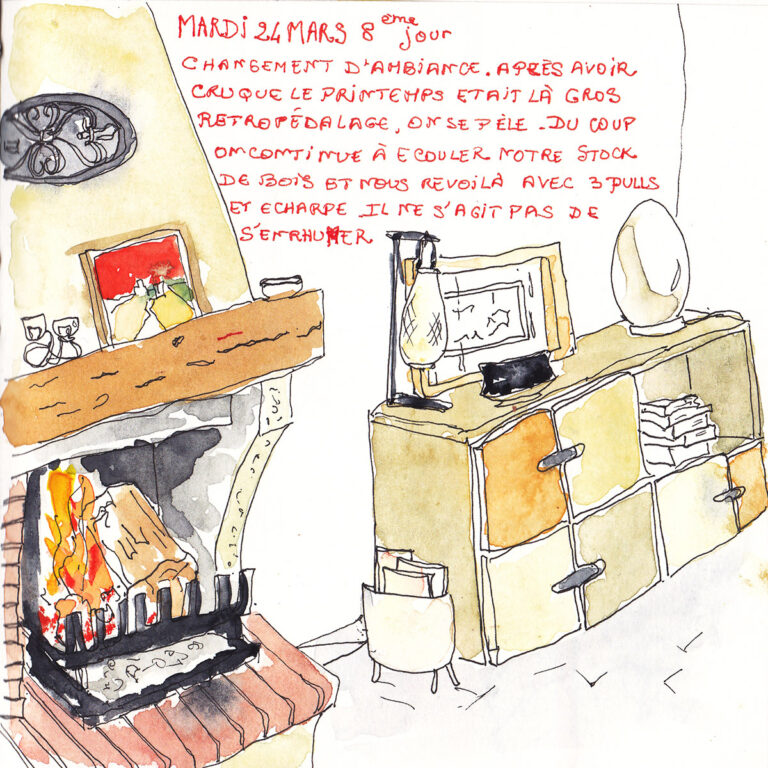 MARDI 24 MARS 8ème jour
CHANGEMENT D'AMBIANCE. APRÈS AVOIR
CRU QUE LE PRINTEMPS ETAIT LÀ GROS
RETROPÉDALAGE, ON SE PÈLE. DU COUP
ON CONTINUE À ECOULER NOTRE STOCK
DE BOIS ET NOUS REVOILÀ AVEC 3 PULLS
ET ECHARPE IL NE S'AGIT PAS DE
S'ENRHUMER